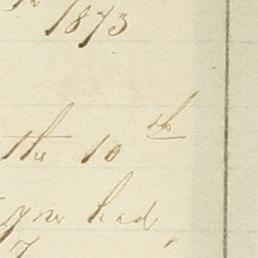 1873
the 10th
you had